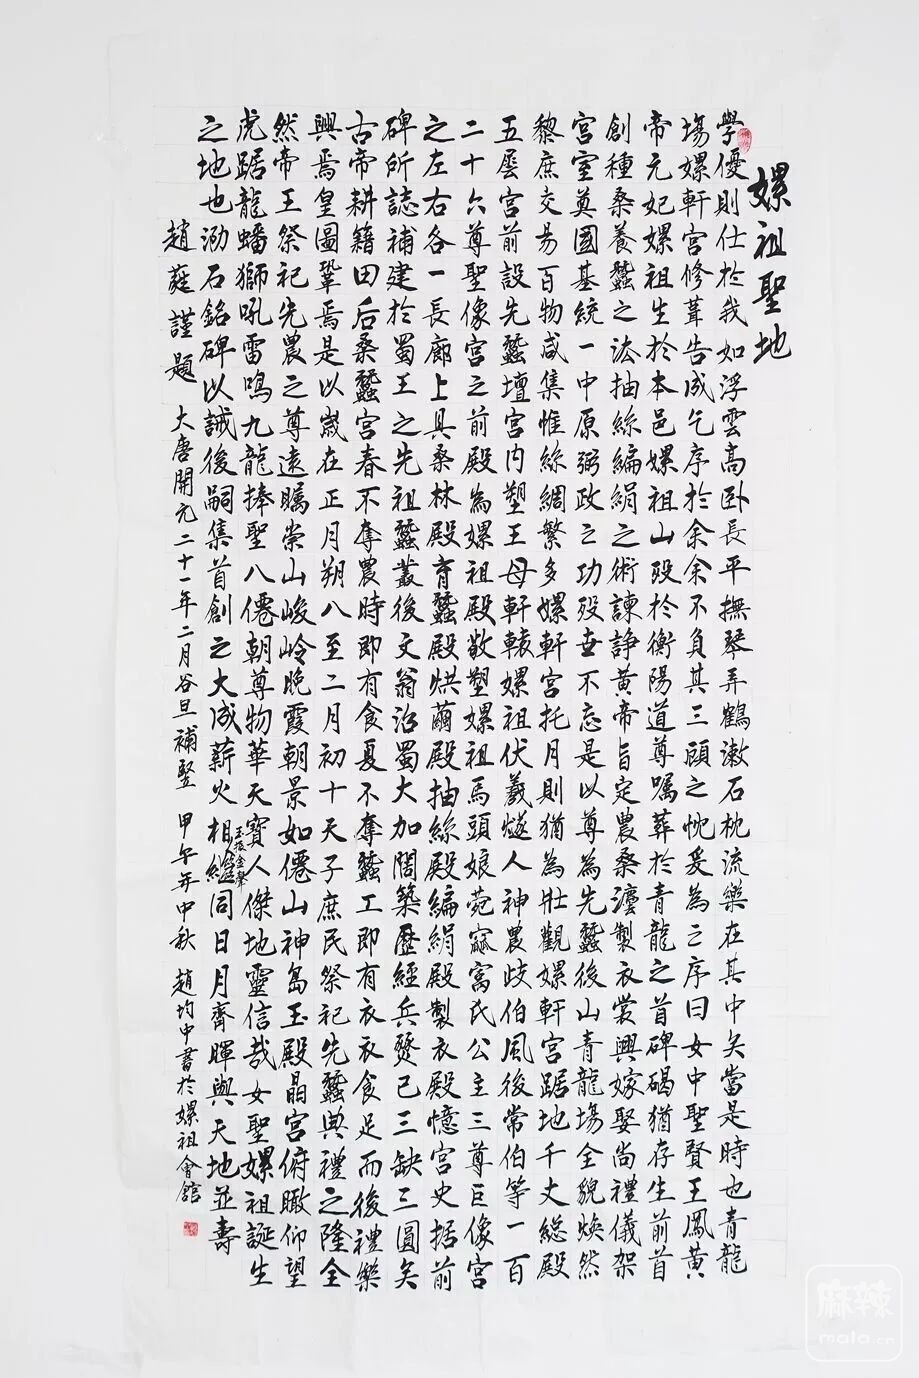 嫘祖聖地
學優則仕於我如浮雲高卧長平撫琴弄鶴漱石枕流樂在其中矣當是時也青龍
塲嫘軒宮修葺告成乞序於余余不負其三顧之忱爰為之序曰女中聖賢王鳳黃
帝元妃嫘祖生於本邑嫘祖山殁於衡陽道尊囑葬於青龍之首碑碣猶存生前首
創種桑養蠶之法抽絲編絹之術諫諍黃帝旨定農桑灋製衣裳興嫁娶尚禮儀架
宮室奠國基統一中原弼政之功殁世不忘是以尊為先蠶後山青龍塲全貌煥然
黎庶交易百物咸集惟絲綢繁多嫘軒宮托月則猶為壯觀嫘軒宮踞地千丈總殿
五層宮前設先蠶壇宮内塑王母軒轅嫘祖伏羲燧人神農歧伯風後常伯等一百
二十六尊聖像宮之前殿為嫘祖殿敬塑嫘祖馬頭娘菀窳寓氏公主三尊巨像宮
之左右各一長廊上具桑林殿育蠶殿烘繭殿抽絲殿編絹殿製衣殿憶宮史据前
碑所誌補建於蜀王之先祖蠶叢後文翁治蜀大加闊築歷經兵燹已三缺三圓矣
古帝耕籍田后桑蠶宮春不奪農時即有食夏不奪蠶工即有衣衣食足而後禮樂
興焉皇圖鞏焉是以嵗在正月朔八至二月初十天子庶民祭祀先蠶典禮之隆全
然帝王祭祀先農之尊遠矚崇山峻岭晚霞朝景如僊山神島玉殿晶宮俯瞰仰望
虎踞龍蟠獅吼雷鳴九龍捧聖八僊朝尊物華天寶人傑地靈信哉女聖嫘祖誕生
之地也泐石銘碑以誡後嗣集首創之大成薪火相繼玉振金聲同日月齊暉與天地並壽
趙蕤謹題 大唐開元二十一年二月谷旦補竪 甲午年中秋 趙均中書於嫘祖會舘
麻辣
mala.cn